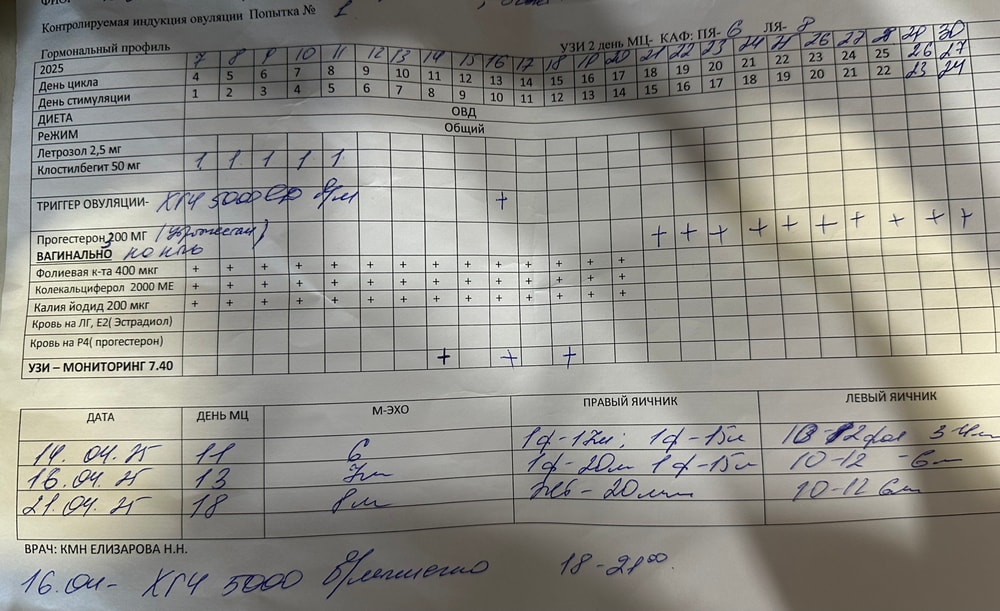 Контролируемая индукция овуляции Попытка № 1
Гормональный профиль УЗИ 2 день МЦ- КАФ: ПЯ- 6 ЛЯ- 8
2025 7 8 9 10 11 12 13 14 15 16 17 18 19 20 21 22 23 24 25 26 27 28 29 30
День цикла 4 5 6 7 8 9 10 11 12 13 14 15 16 17 18 19 20 21 22 23 24 25 26 27
День стимуляции 1 2 3 4 5 6 7 8 9 10 11 12 13 14 15 16 17 18 19 20 21 22 23 24
ДИЕТА ОВД
РеЖИМ Общий
Летрозол 2,5 мг
Клостилбегит 50 мг 1 1 1 1 1
ТРИГГЕР ОВУЛЯЦИИ- ХГЧ 5000 ЕД в/м +
Прогестерон 200 МГ (Утрожестан) + + + + + + + + + +
ВАГИНАЛЬНО на ночь
Фолиевая к-та 400 мкг + + + + + + + + + + + + + +
Колекальциферол 2000 МЕ + + + + + + + + + + + + + +
Калия йодид 200 мкг + + + + + + + + + + + + + +
Кровь на ЛГ, Е2( Эстрадиол)
Кровь на Р4( прогестерон)
УЗИ – МОНИТОРИНГ 7.40 + + +
ДАТА ДЕНЬ МЦ М-ЭХО ПРАВЫЙ ЯИЧНИК ЛЕВЫЙ ЯИЧНИК
14.04.25 11 6 1ф-17м; 1ф-15м
16.04.25 13 7м 1ф-20м 1ф-15м 10-12 -6м
21.04.25 18 8м 20мм 10-12 6м
ВРАЧ: КМН ЕЛИЗАРОВА Н.Н.
16.04- ХГЧ 5000 18-21⁰⁰